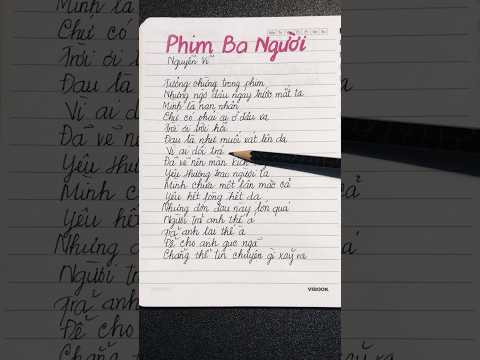 Phim Ba Người
Nguyễn Vĩ
Tưởng chừng trong phim
Nhưng ngờ đâu ngay trước mắt ta
Mình là nạn nhân
Chứ có phải ai ở đâu xa
Trời ơi trời hỡi
Đau là như muối xát lên da
Vì ai dối trá
Đã vẽ nên màn kịch
Yêu thương trao người ta
Mình chưa một lần mặc cả
Yêu hết lòng hết dạ
Nhưng đớn đau này lớn quá
Người trả anh thế à
Trả anh lại thế à
Để cho anh gục ngã
Chẳng thể tin chuyện gì xảy ra
VIBOOK